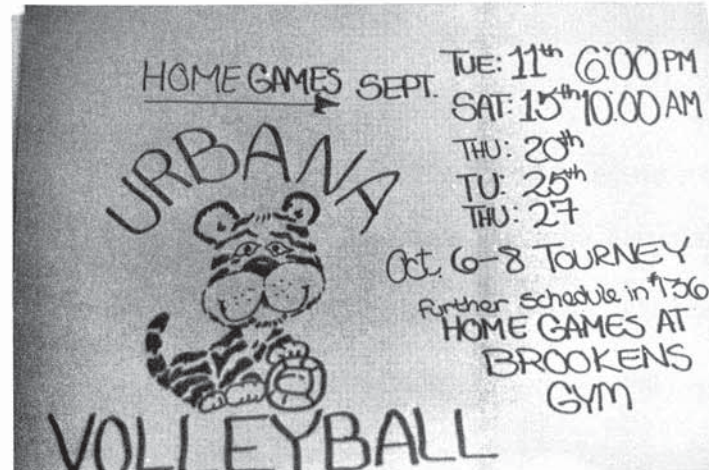 HOME GAMES SEPT.
TUE: 11th 6:00 PM
SAT: 15th 10:00 AM
THU: 20th
TU: 25th
THU: 27
Oct. 6-8 TOURNEY
further schedule in #136
HOME GAMES AT
BROOKENS
GYM
URBANA
VOLLEYBALL